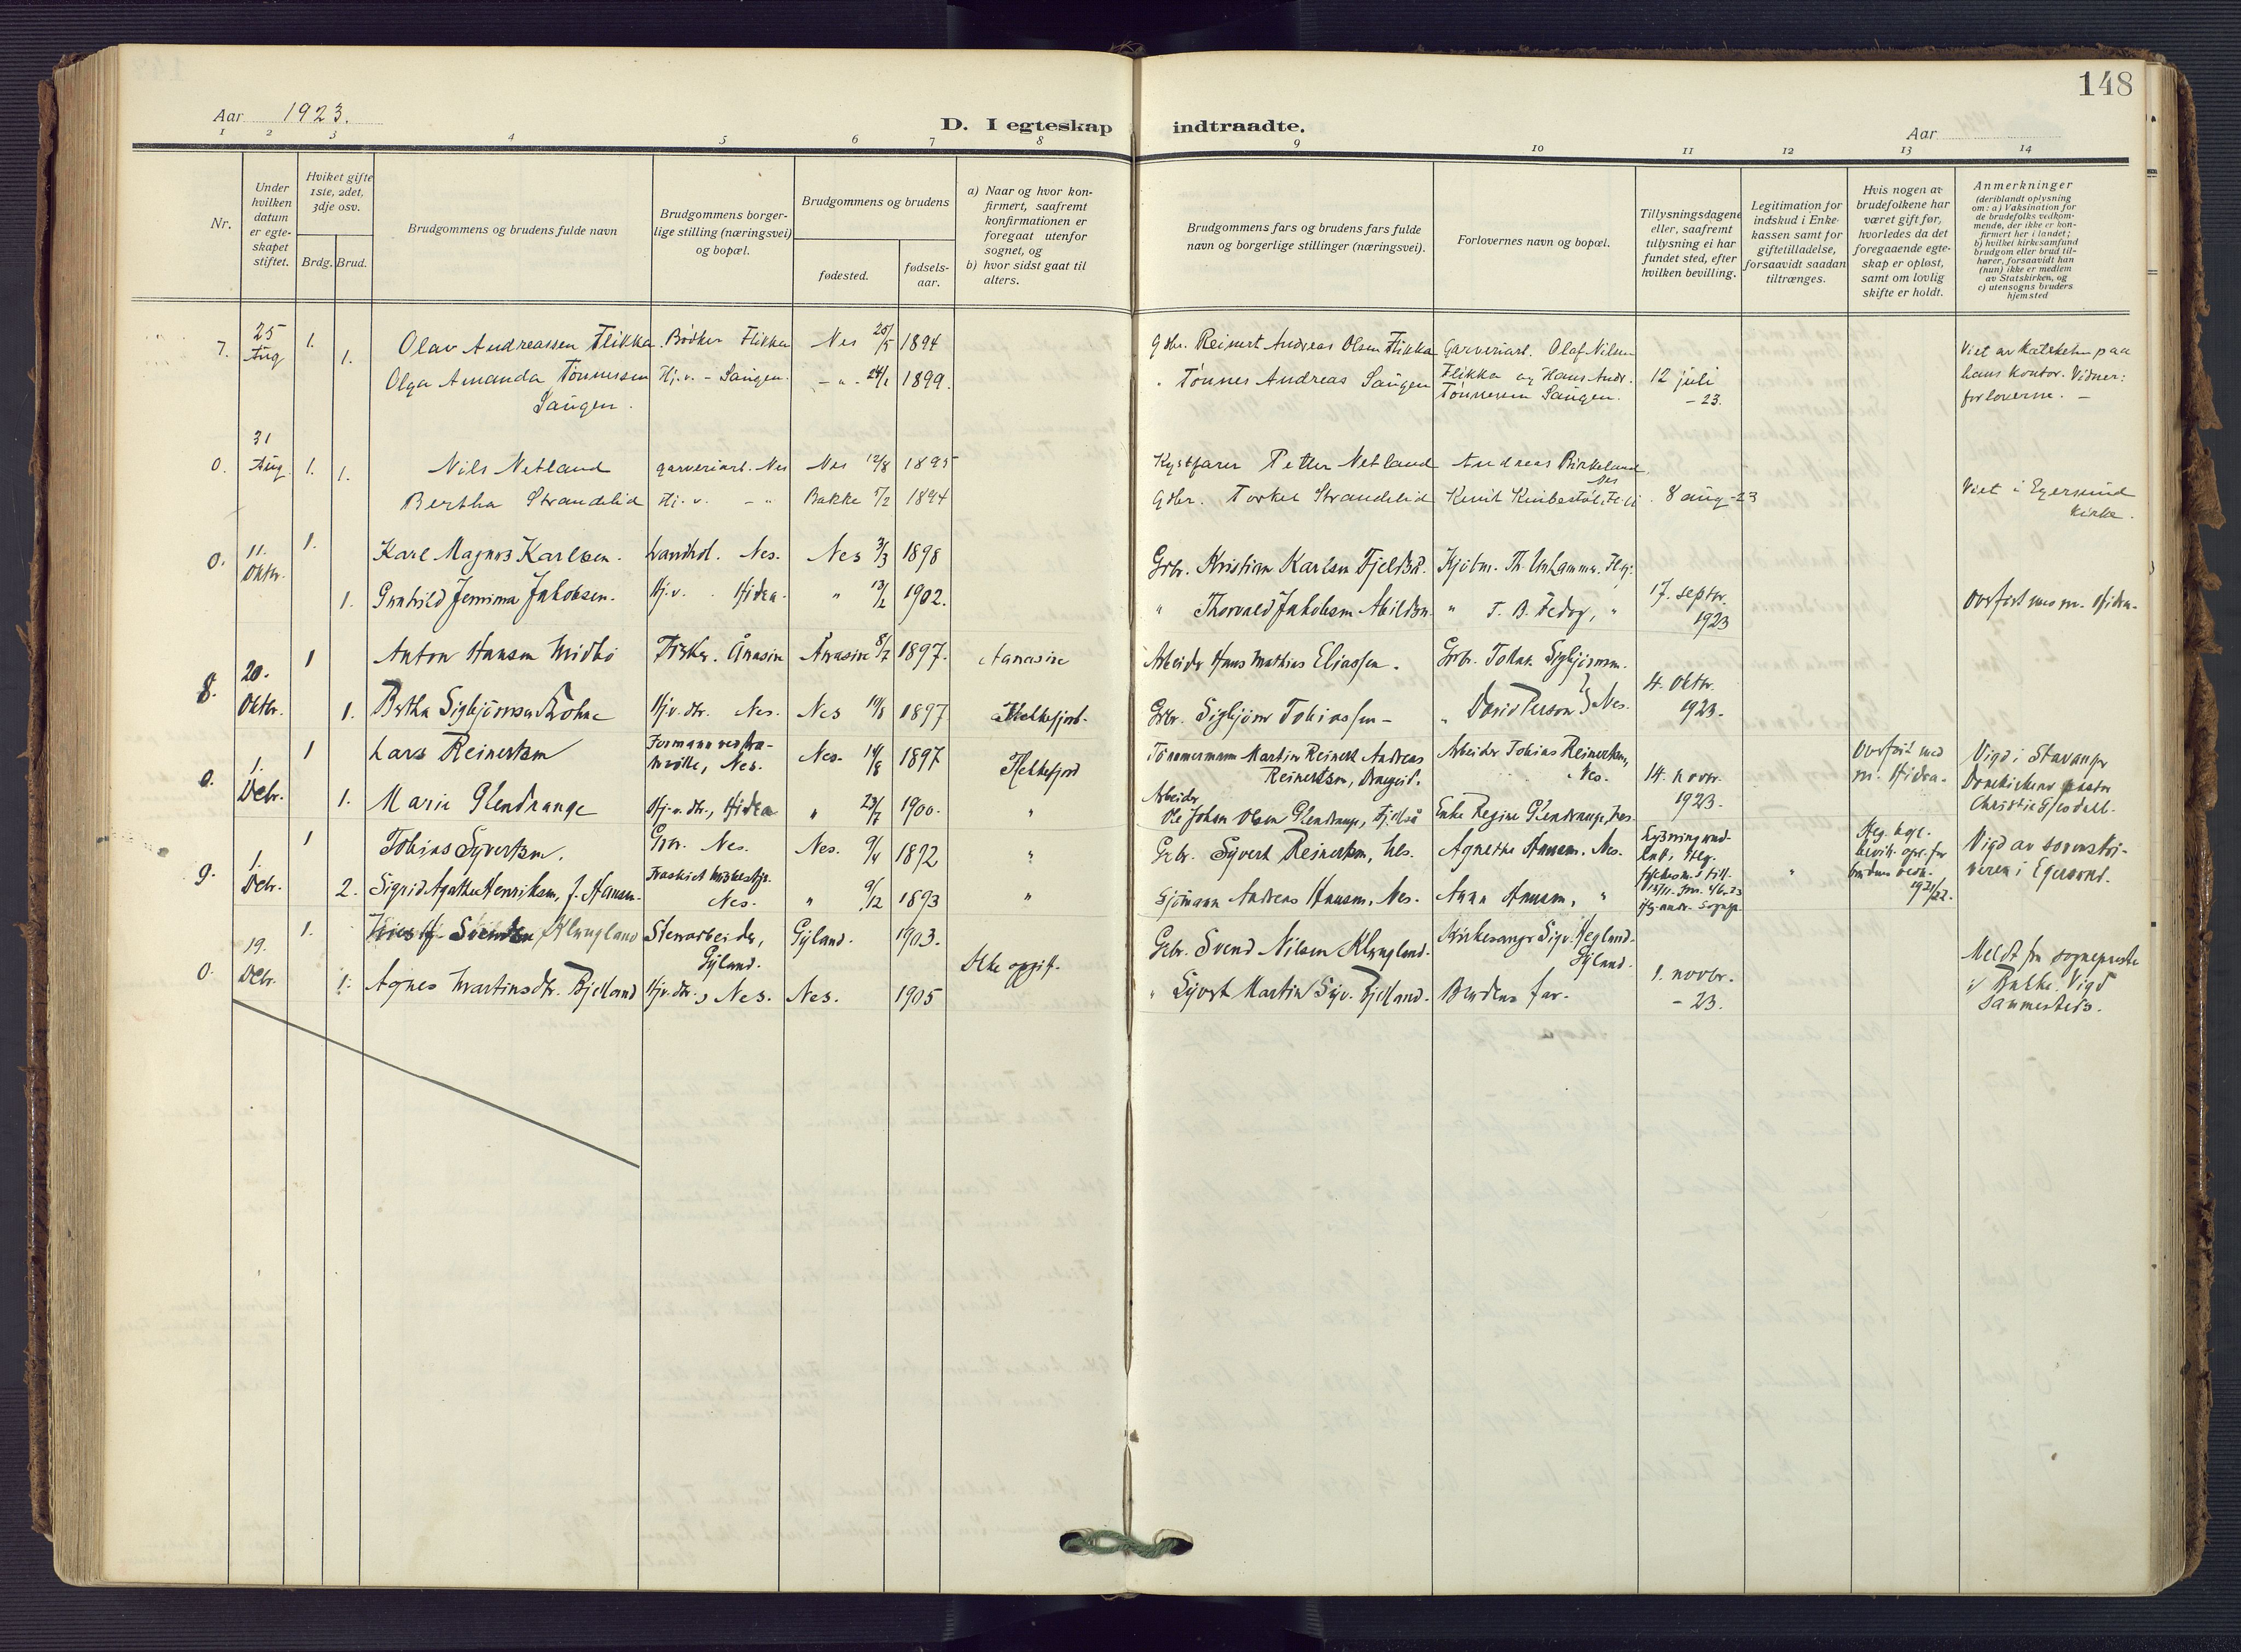 148
Aar 1923.
D. I egteskap indtraadte.
Aar
1 2 3 4 5 6 7 8 9 10 11 12 13 14
Nr.
Under hvilken datum er egteskapet stiftet.
Hvilket gifte 1ste, 2det, 3dje osv.
Brdg. Brud.
Brudgommens og brudens fulde navn
Brudgommens borgerlige stilling (næringsvei) og bopæl.
Brudgommens og brudens
fødested.
fødselsaar.
a) Naar og hvor konfirmert, saafremt konfirmationen er foregaat utenfor sognet, og
b) hvor sidst gaat til alters.
Brudgommens fars og brudens fars fulde navn og borgerlige stillinger (næringsvei).
Forlovernes navn og bopæl.
Tillysningsdagene eller, saafremt tillysning ei har fundet sted, efter hvilken bevilling.
Legitimation for indskud i Enkekassen samt for giftetilladelse, forsaavidt saadan tiltrænges.
Hvis nogen av brudefolkene har været gift før, hvorledes da det foregaaende egteskap er opløst, samt om lovlig skifte er holdt.
Anmerkninger (deriblandt oplysning om: a) Vaksination for de brudefolks vedkommende, der ikke er konfirmert her i landet; b) hvilket kirkesamfund brudgom eller brud tilhører, forsaavidt han (hun) ikke er medlem av Statskirken, og c) utensogns bruders hjemsted
7. 25 Aug 1. Olav Andreassen Flikka. Bødker Flikka Nes 25/5 1894 Gdbr. Reinert Andreas Olsen Flikka Garveriarb. Olaf Nilsen
1. Olga Amanda Tønnessen Saugen. Hj.v. - Saugen. - " - 24/1 1899. " Tønnes Andreas Saugen Flikka og Hans Andr. Tønnessen Saugen. 12 juli - 23.
hans kontor. Vidner: forloverne. -
0. 31 Aug 1. Nils Netland garveriarb. Nes Nes 12/8 1895 Kystfarer Petter Netland Andreas Birkeland
1. Bertha Strandelid Hj.v. - " Bakke 7/2 1894 Gdbr. Torkel Strandelid 8 aug - 23 Viet i Egersund kirke.
0. 11. Oktbr. 1. Karl Magnus Karlsen. Nes. Nes 3/3 1898 Grbr. Kristian Karlsen Fjeldså.
1. Gunhild Jemima Jakobsen. Hj.v. Hidra. " 1902. " Thorvald Jakobsen " 17. septbr. 1923 Overført med m. Hidra.
8. 20. Oktbr. 1 Anton Hansen Midbø Fisker. Ånasira Ånasira 8/7 1897. Aanasira Arbeider Hans Mathias Eliassen. Grbr. Tobias Sigbjørnsen.
1. Bertha Sigbjørnsen Hj.v. dtr. Nes. Nes 1897 Flekkefjord. Grbr. Sigbjørn Tobiassen - " David Person } Nes. 4. Oktbr. 1923.
0. 1. Debr. 1 Lars Reinertsen Nes. Nes. 14/8 1897 Flekkefjord Tømmermann Martin Reinert Andreas Reinertsen, Arbeider Tobias Reinertsen, Nes. Overført med m. Hidra. Vigd i Stavanger
1. Marie Glendrange Hj.v. dtr., Hidra " 23/7 1900. " Arbeider Ole Johan Olsen Glendrange, Fjeldså Enke Regine Glendrange, 14. novbr. 1923. Domkirken
9. 1. Debr. 1 Tobias Syvertsen. Grbr. Nes. Nes. 9/4 1892 " Grbr. Syvert Reinertsen, Nes. Agnethe Hansen. Nes. Vigd av sorenskriveren i Egersund.
2. Sigrid Agathe Henriksen, f. Hansen. Nes. " 9/12 1893 " Sjømann Andreas Hansen, Nes. Anna Hansen, " " 1921/22.
0. 19. Debr. 1. Svendsen Klungland Stenarbeider, Gyland. Gyland. 1903. Ikke opgit. Grbr. Svend Nilsen Klungland. Kirkesanger Sigv. Hegland. Gyland. Meldt fra sogneprest
1. Agnes Martinsdtr. Bjelland Hj.v. dtr., Nes. Nes. 1905 " Syvert Martin Syv. Bjelland. Brudens far. 1. novbr. - 23. i Bakke. Vigd sammesteds.